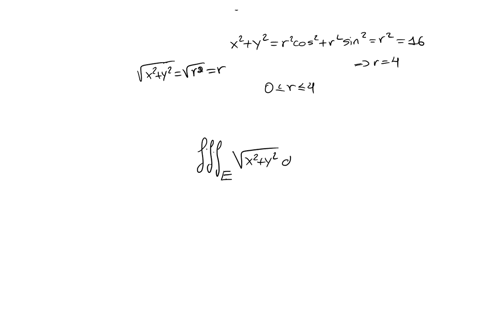 x²+y²=r²cos²+r²sin²=r²=16
√x²+y²=√r²=r
→r=4
0≤r≤4
∭_E √x²+y² d